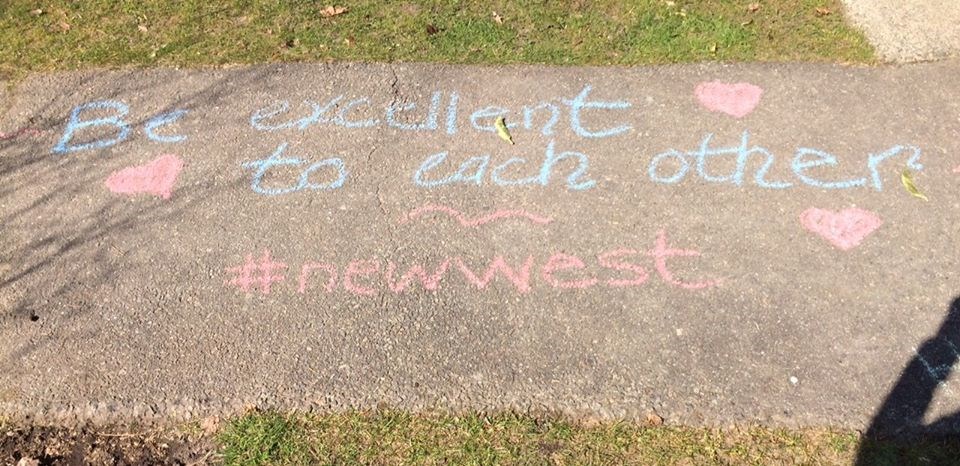 Be excellent
to each other
#newwest